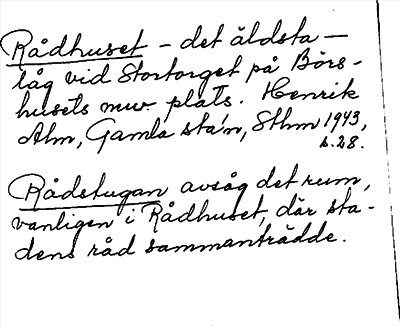 Rådhuset – det äldsta –
låg vid Stortorget på Börs-
husets nuv. plats. Henrik
Alm, Gamla sta'n, Sthm 1943,
s. 28.
Rådstugan avsåg det rum,
vanligen i Rådhuset, där sta-
dens råd sammanträdde.